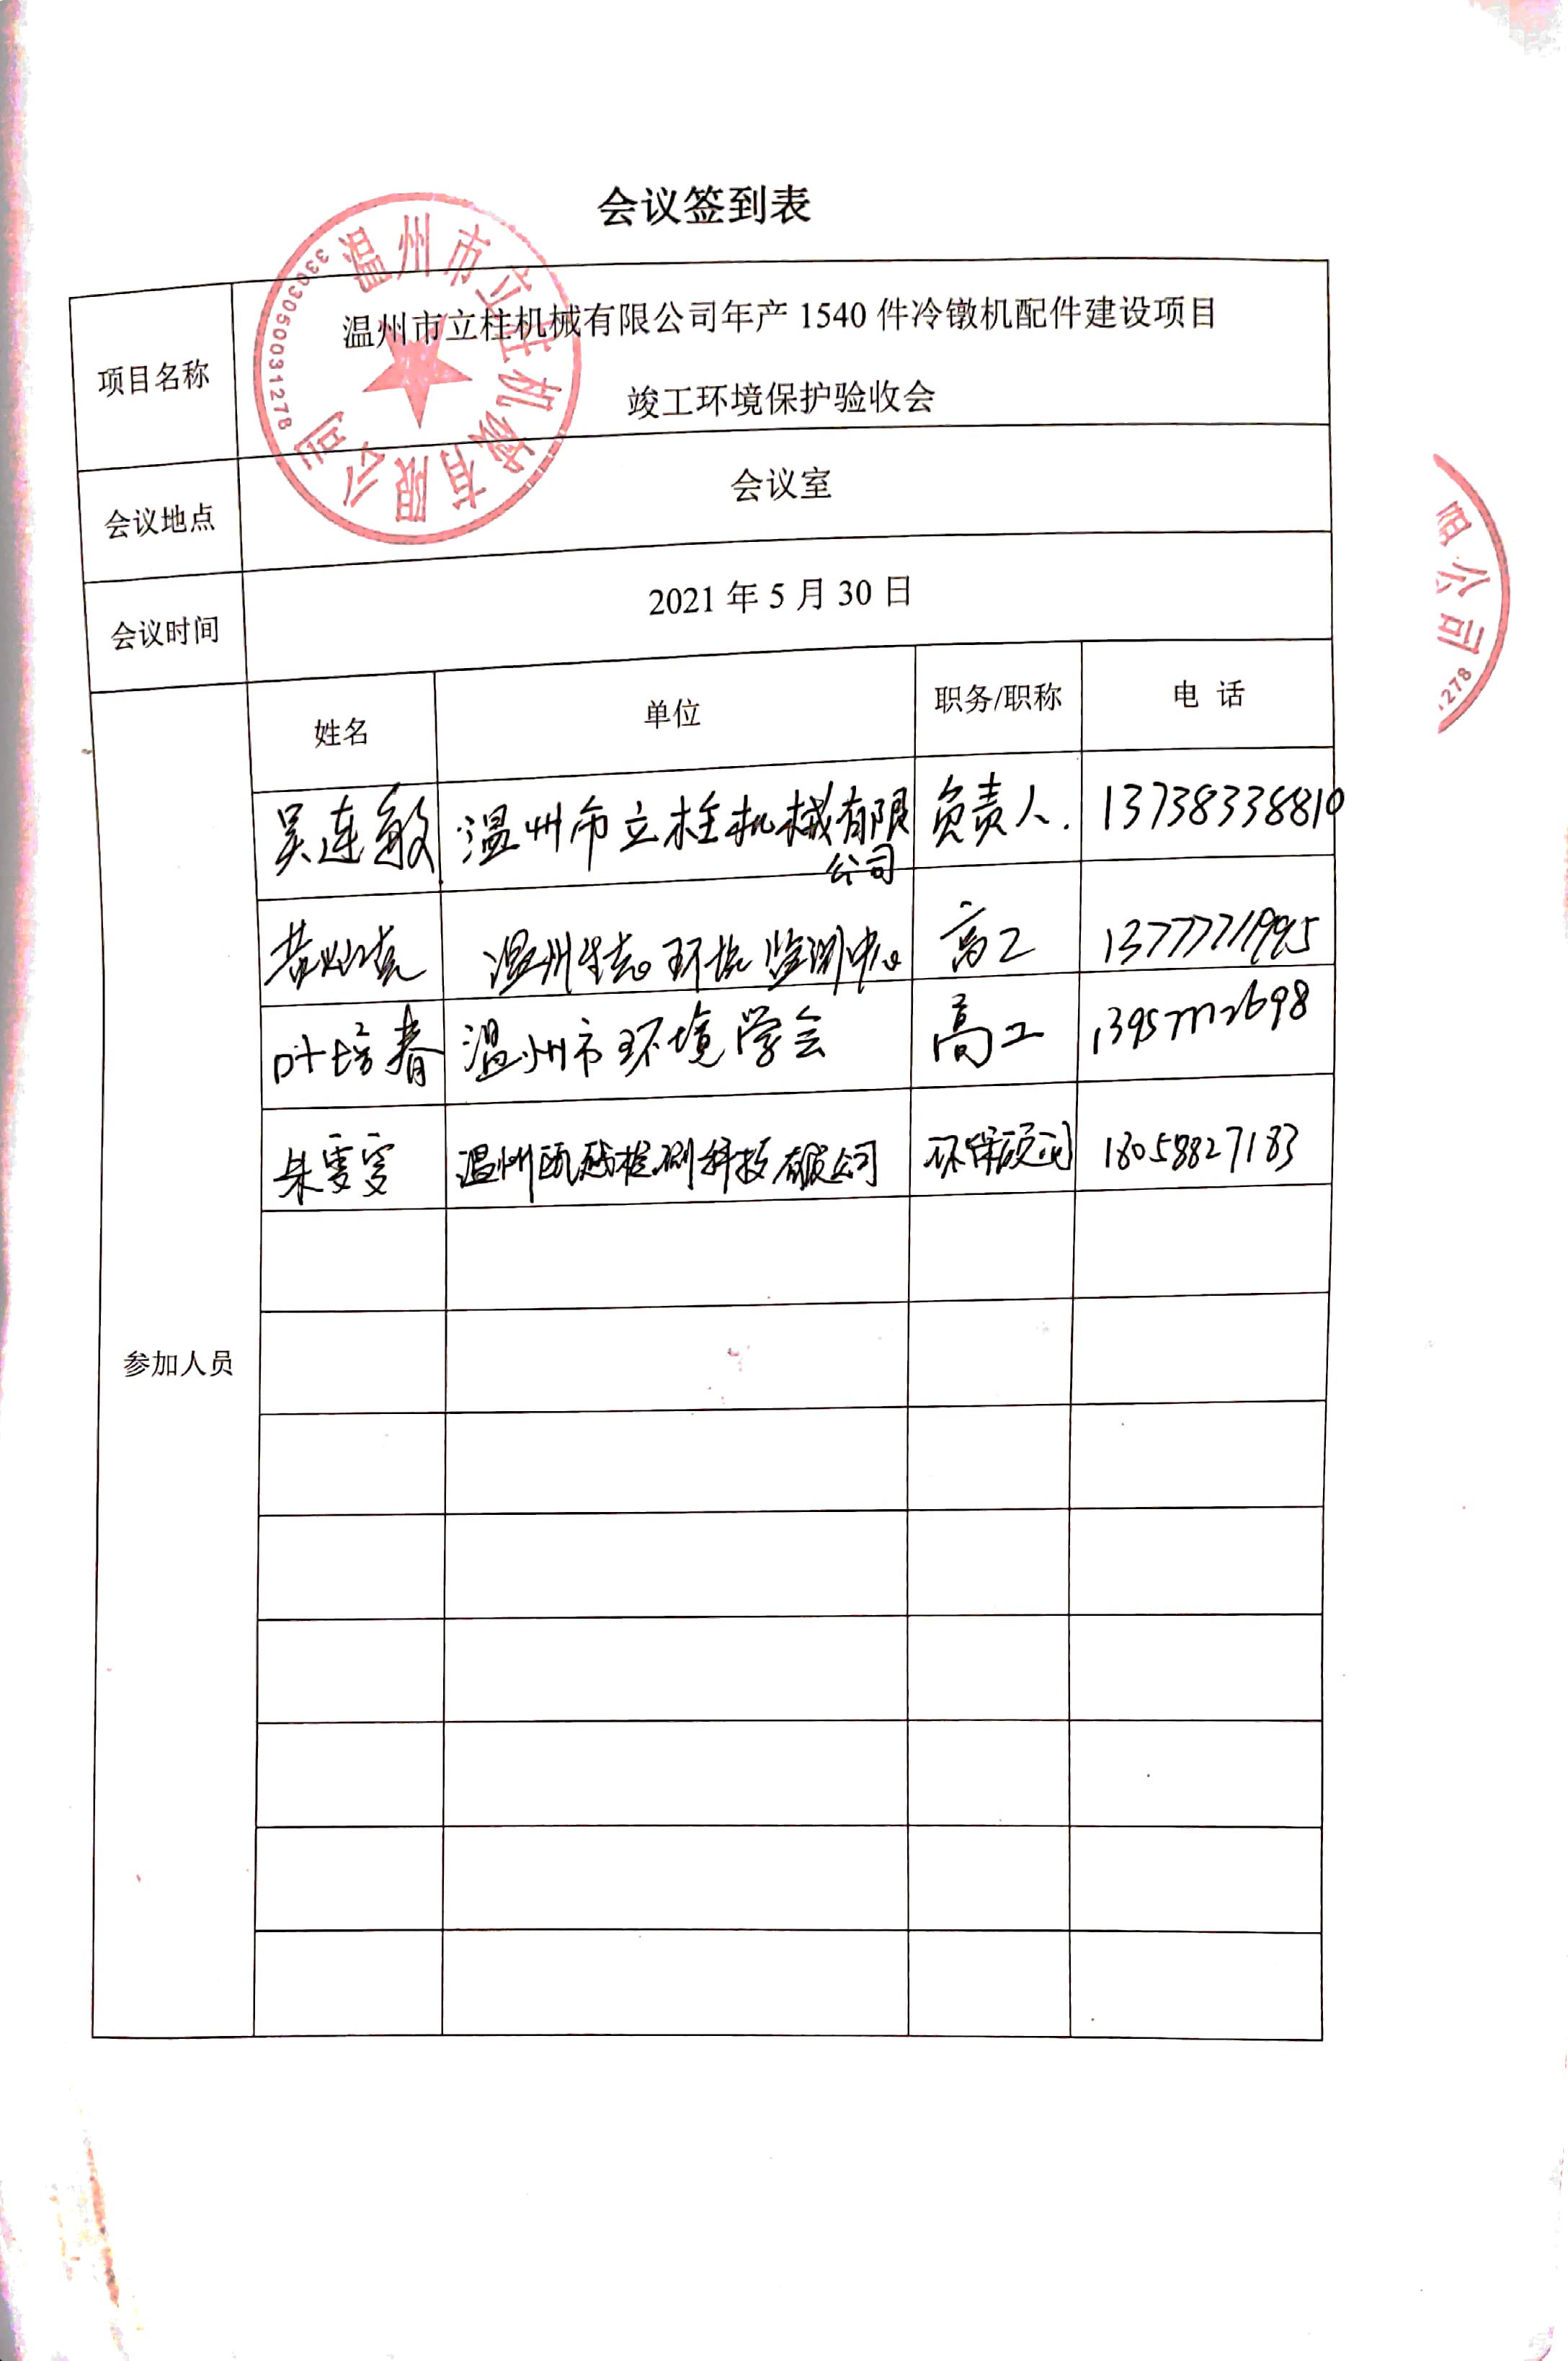 会议签到表
温州市立柱机械有限公司
3303050031278
项目名称
温州市立柱机械有限公司年产 1540 件冷镦机配件建设项目
竣工环境保护验收会
会议地点
会议室
会议时间
2021 年 5 月 30 日
参加人员
姓名 单位 职务/职称 电 话
吴连敏 温州市立柱机械有限公司 负责人. 13738338810
温州生态环境监测中心 高工
叶培春 温州市环境学会 高工
朱雯雯 温州瓯越检测科技有限公司 环保顾问 18058827183
限公司
278